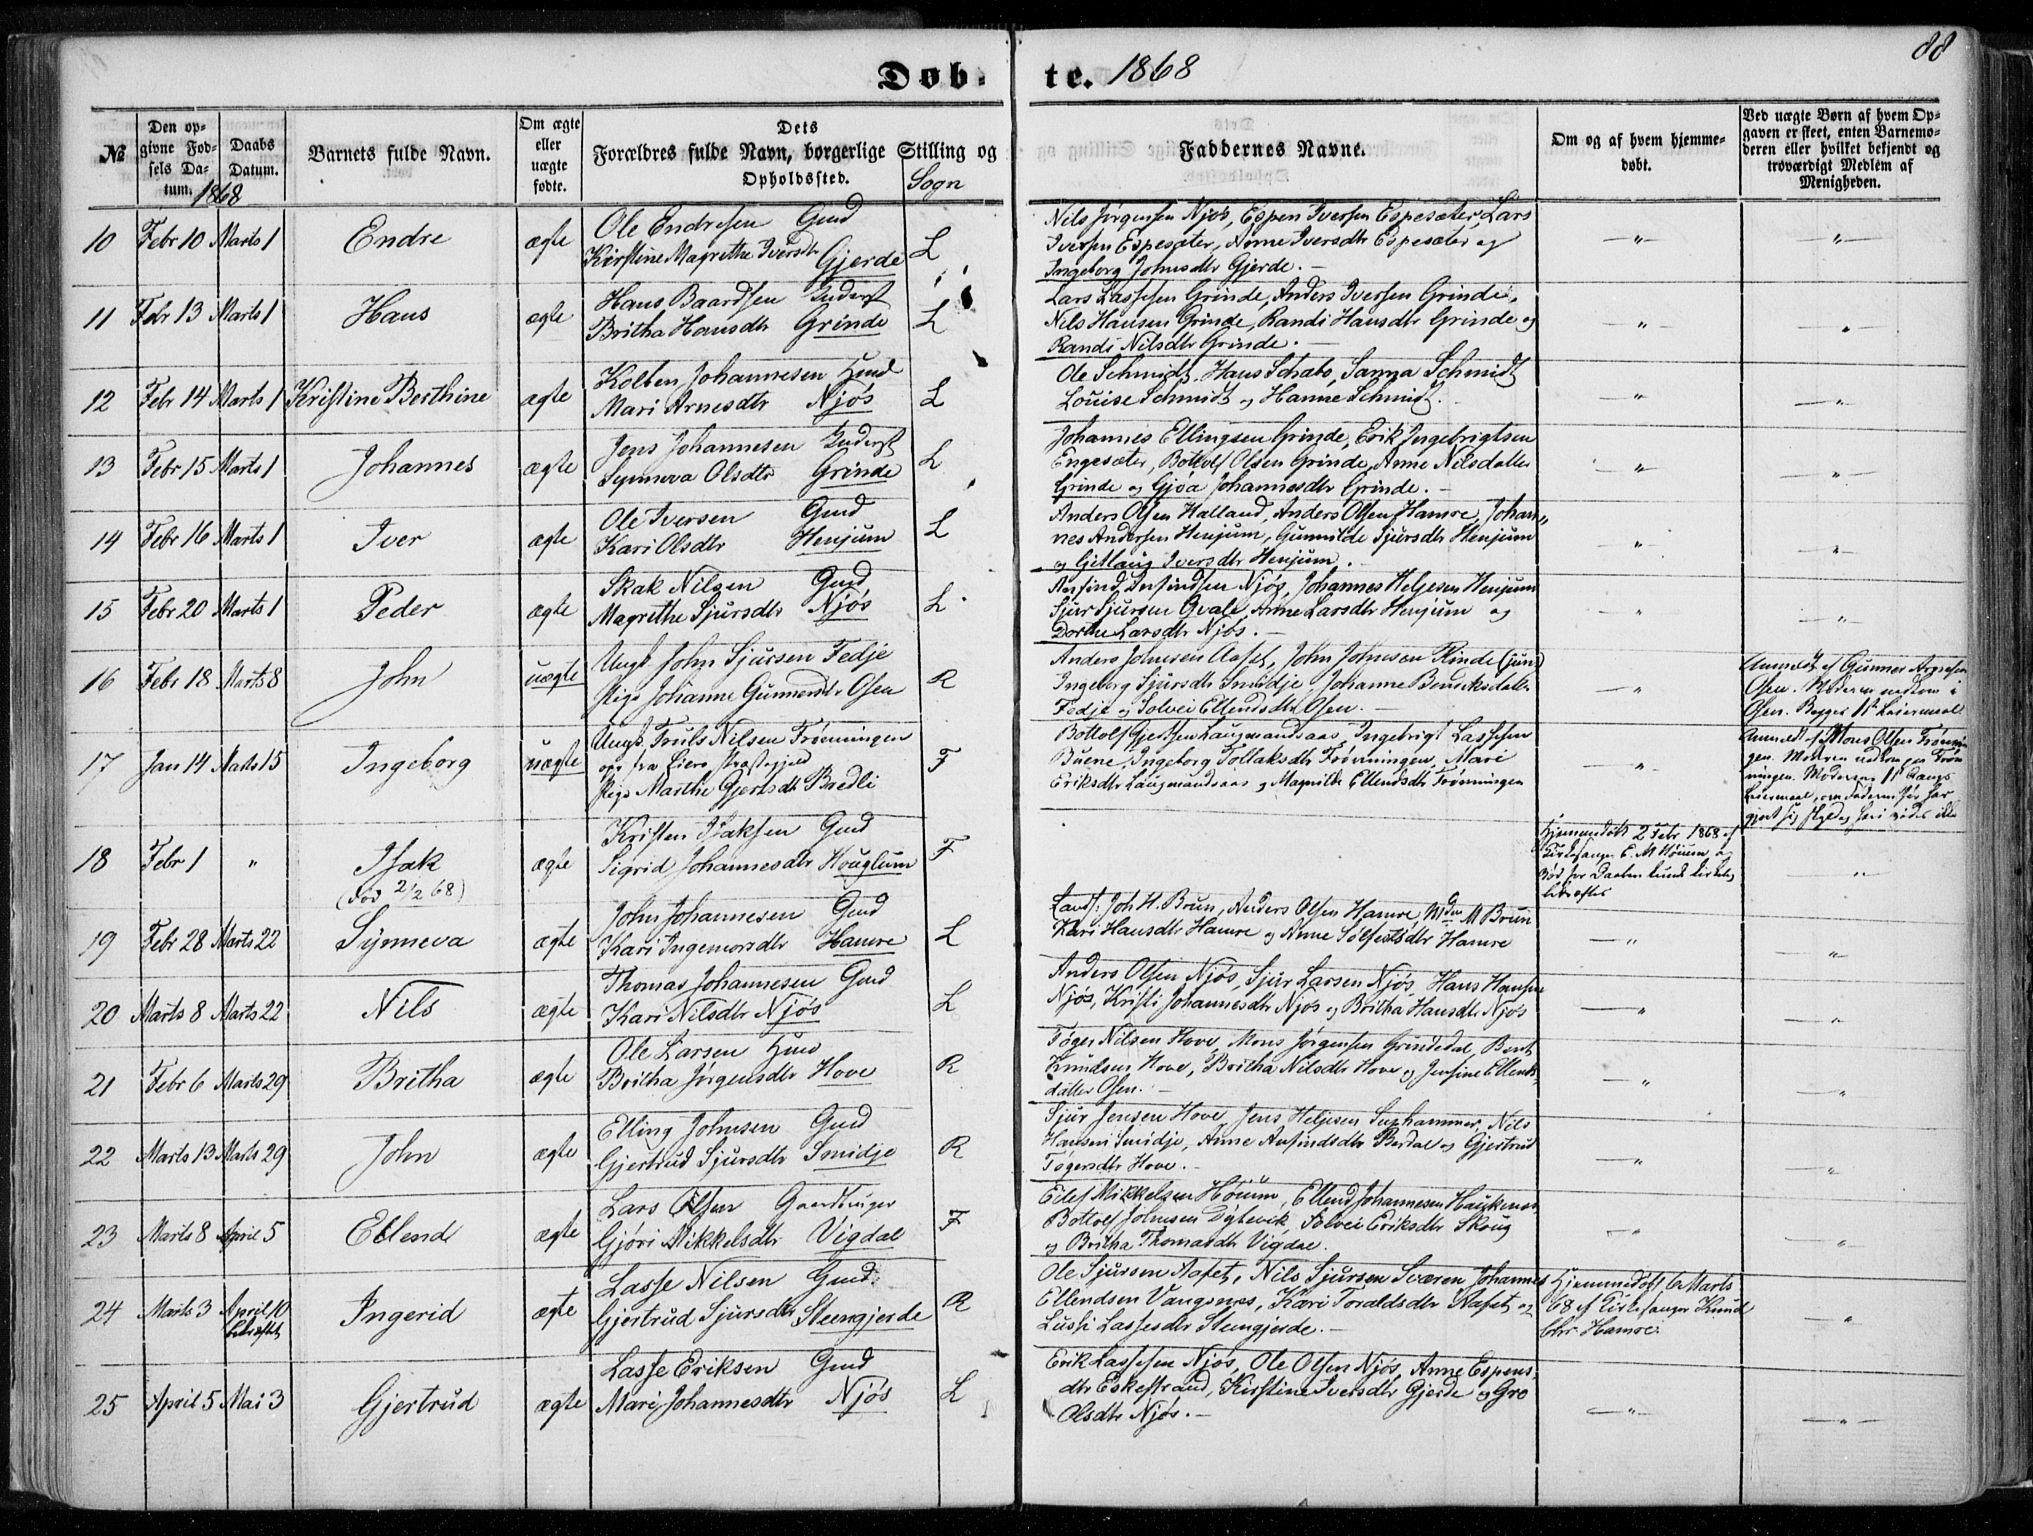 88
Døbte. 1868
№
Den opgivne Fødsels Datum. 1868
Daabs Datum.
Barnets fulde Navn.
Om ægte eller uægte fødte.
Dets Forældres fulde Navn, borgerlige Stilling og Opholdssted.
Sogn
Faddernes Navne.
Om og af hvem hjemmedøbt.
Ved uægte Børn af hvem Opgaven er skeet, enten Barnemoderen eller hvilket bekjendt og troværdigt Medlem af Menigheden.
10 Febr 10 Marts 1 Endre ægte
Ole Endresen Gmd
Kirstine Magrethe Iversdtr Gjerde L
Nils Jørgensen Njøs, Espen Iversen Espesæter, Lars
Iversen Espesæter, Anne Iversdtr Espesæter og
Ingeborg Johnsdtr Gjerde. —
11 Febr 13 Marts 1 Hans ægte
Hans Baardsen Inderst
Britha Hansdtr Grinde L
Lars Lassesen Grinde, Anders Iversen Grinde,
Nils Hansen Grinde, Randi Hansdtr Grinde og
Randi Nilsdtr Grinde. —
12 Febr 14 Marts 1 Kristine Berthine ægte
Kolben Johannesen Hmd
Mari Arnesdtr Njøs L
Ole Schmidt, Hans Schabo, Sanna Schmidt
Louise Schmidt og Hanne Schmidt.
13 Febr 15 Marts 1 Johannes ægte
Jens Johannesen Inderst
Synneva Olsdtr Grinde L
Johannes Ellingsen Grinde, Erik Ingebrigtsen
Engesæter, Bottolf Olsen Grinde, Anne Nilsdatter
Grinde og Gjøa Johannesdtr Grinde. —
14 Febr 16 Marts 1 Iver ægte
Ole Iversen Gmd
Kari Olsdtr Henjum L
Anders Olsen Halland, Anders Olsen Hamre, Johan„
nes Andersen Henjum, Gunnilde Sjursdtr Henjum
og Gitlaug Iversdtr Henjum.
15 Febr 20 Marts 1 Peder ægte
Skak Nilsen Gmd
Magrethe Sjursdtr Njøs L
Anfind Anfindsen Njøs, Johannes Heljesen Henjum
Sjur Sjursen Qvale, Anne Larsdtr Henjum og
Dorthe Larsdtr Njøs. —
16 Febr 18 Marts 8 John uægte
Ungk. John Sjursen Fedje
Pige Johanne Gunnersdtr Osen R
Anders Johnsen Aafet, John Johnsen Rinde (jun)
Ingeborg Sjursdtr Smidje, Johanne Bendiksdatter
Fedje og Solvei Ellendsdtr Osen. —
Anmeldt af Gunner Arnesen
Osen. Moderen nedkom i
Osen. Begges 1ste Leiermaal
17 Jan 14 Marts 15 Ingeborg uægte
Ungk. Truls Nilsen Frønningen
Pige Marthe Gjertsdtr Bredli F
Bottolf Gjertsen Laugmandsaas, Ingebrigt Lassesen
Buene, Ingeborg Tollaksdtr Frønningen, Mari
Eriksdtr Laugmandsaas og Magnilde Ellendsdtr Frønningen
Anmeldt af Mons Olsen Frønnin
gen. Moderen nedkom paa Frøn
ningen. Moderens 1ste Gangs
Leiermaal, om Faderen før har
gjort sig skyldig heri vides ikke
18 Febr 1 " Isak ægte
(død 2/2 68)
Kristen Isaksen Gmd
Sigrid Johannesdtr Houglum F
Hjemmedøbt 2 Febr 1868 af
Kirkesanger E. M Høium og
død før Daaben kunde kirkelig
bekræftes
19 Febr 28 Marts 22 Synneva ægte
John Johannesen Gmd
Kari Ingemorsdtr Hamre L
Joh H. Brun, Anders Olsen Hamre, M Brun
Kari Hansdtr Hamre og Anne Solfestsdtr Hamre
20 Marts 8 Marts 22 Nils ægte
Thomas Johannesen Gmd
Kari Nilsdtr Njøs L
Anders Olsen Njøs, Sjur Larsen Njøs, Hans Hansen
Njøs, Kristi Johannesdtr Njøs og Britha Hansdtr Njøs
21 Febr 6 Marts 29 Britha ægte
Ole Larsen Hmd
Britha Jørgensdtr Hove R
Tøger Nilsen Hove, Mons Jørgensen Grindedal, Bent
Knudsen Hove, Britha Nilsdtr Hove og Jensine Ellends
datter Osen. —
22 Marts 13 Marts 29 John ægte
Elling Johnsen Gmd
Gjertrud Sjursdtr Smidje R
Sjur Jensen Hove, Jens Heljesen Suphammer, Nils
Hansen Smidje, Anne Anfindsdtr Berdal og Gjertrud
Tøgersdtr Hove. —
23 Marts 8 April 5 Ellend ægte
Lars Olsen Gaardbruger
Gjøri Mikkelsdtr Vigdal F
Eilef Mikkelsen Høium, Ellend Johannesen
Bottolf Johnsen Dybevik, Solvei Eriksdtr Skoug
og Britha Thomasdtr Vigdal.
24 Marts 3 April 10 bekræftet Ingerid ægte
Lasse Nilsen Gmd.
Gjertrud Sjursdtr Steengjerde R
Ole Sjursen Aafet, Nils Sjursen Sværen, Johannes
Ellendsen Vangsnes, Kari Toraldsdtr Aafet og
Lussi Lassesdtr Stengjerde. —
Hjemmedøbt 6 Marts
68 af Kirkesanger Knud
Hamre.
25 April 5 Mai 3 Gjertrud ægte
Lasse Eriksen Gmd
Mari Johannesdtr Njøs L
Erik Lassesen Njøs, Ole Olsen Njøs, Anne Espens
dtr Eskestrand, Kirstine Iversdtr Gjerde og Gro
Olsdtr Njøs. —